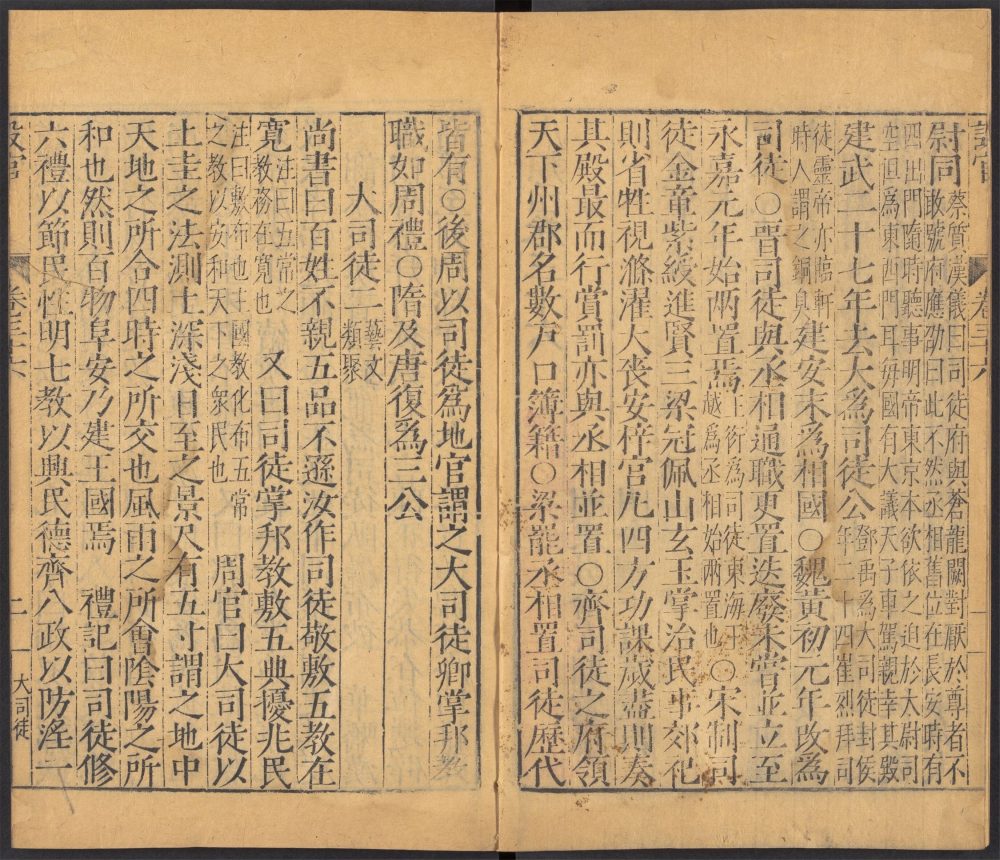 設官 卷三十六
尉同蔡質漢儀曰司徒府與蒼龍闕對厭於尊者不
敢號府應劭曰此不然丞相舊位在長安時有
四出門隨時聽事明帝東京本欲依之迫於大尉司
空但爲東西門耳每國有大議天子車駕親幸其殿
建武二十七年去大爲司徒公鄧禹爲大司徒封侯
年二十四崔烈拜司
徒靈帝亦臨軒
時人謂之銅臭建安末爲相國○魏黃初元年改爲
司徒○晉司徒與丞相通職更置迭廢未嘗並立至
永嘉元年始兩置焉王衍爲司徒東海王
越爲丞相始兩置也○宋制司
徒金章紫綬進賢三梁冠佩山玄玉掌治民事郊祀
則省牲視滌濯大喪安梓宮凡四方功課歲盡則奏
其殿最而行賞罰亦與丞相並置○齊司徒之府領
天下州郡名數戸口簿籍○梁罷丞相置司徒歷代
皆有○後周以司徒爲地官謂之大司徒卿掌邦教
職如周禮○隋及唐復爲三公
大司徒二藝文
類聚
尚書曰百姓不親五品不遜汝作司徒敬敷五教在
寬注曰五常之
教務在寬也 又曰司徒掌邦教敷五典擾兆民
注曰敷布也主國教化布五常
之教以安和天下之衆民也 周官曰大司徒以
土圭之法測土深淺日至之景尺有五寸謂之地中
天地之所合四時之所交也風雨之所會陰陽之所
和也然則百物阜安乃建王國焉 禮記曰司徒修
六禮以節民性明七教以興民德齊八政以防淫一
設官 卷三十六 二 大司徒